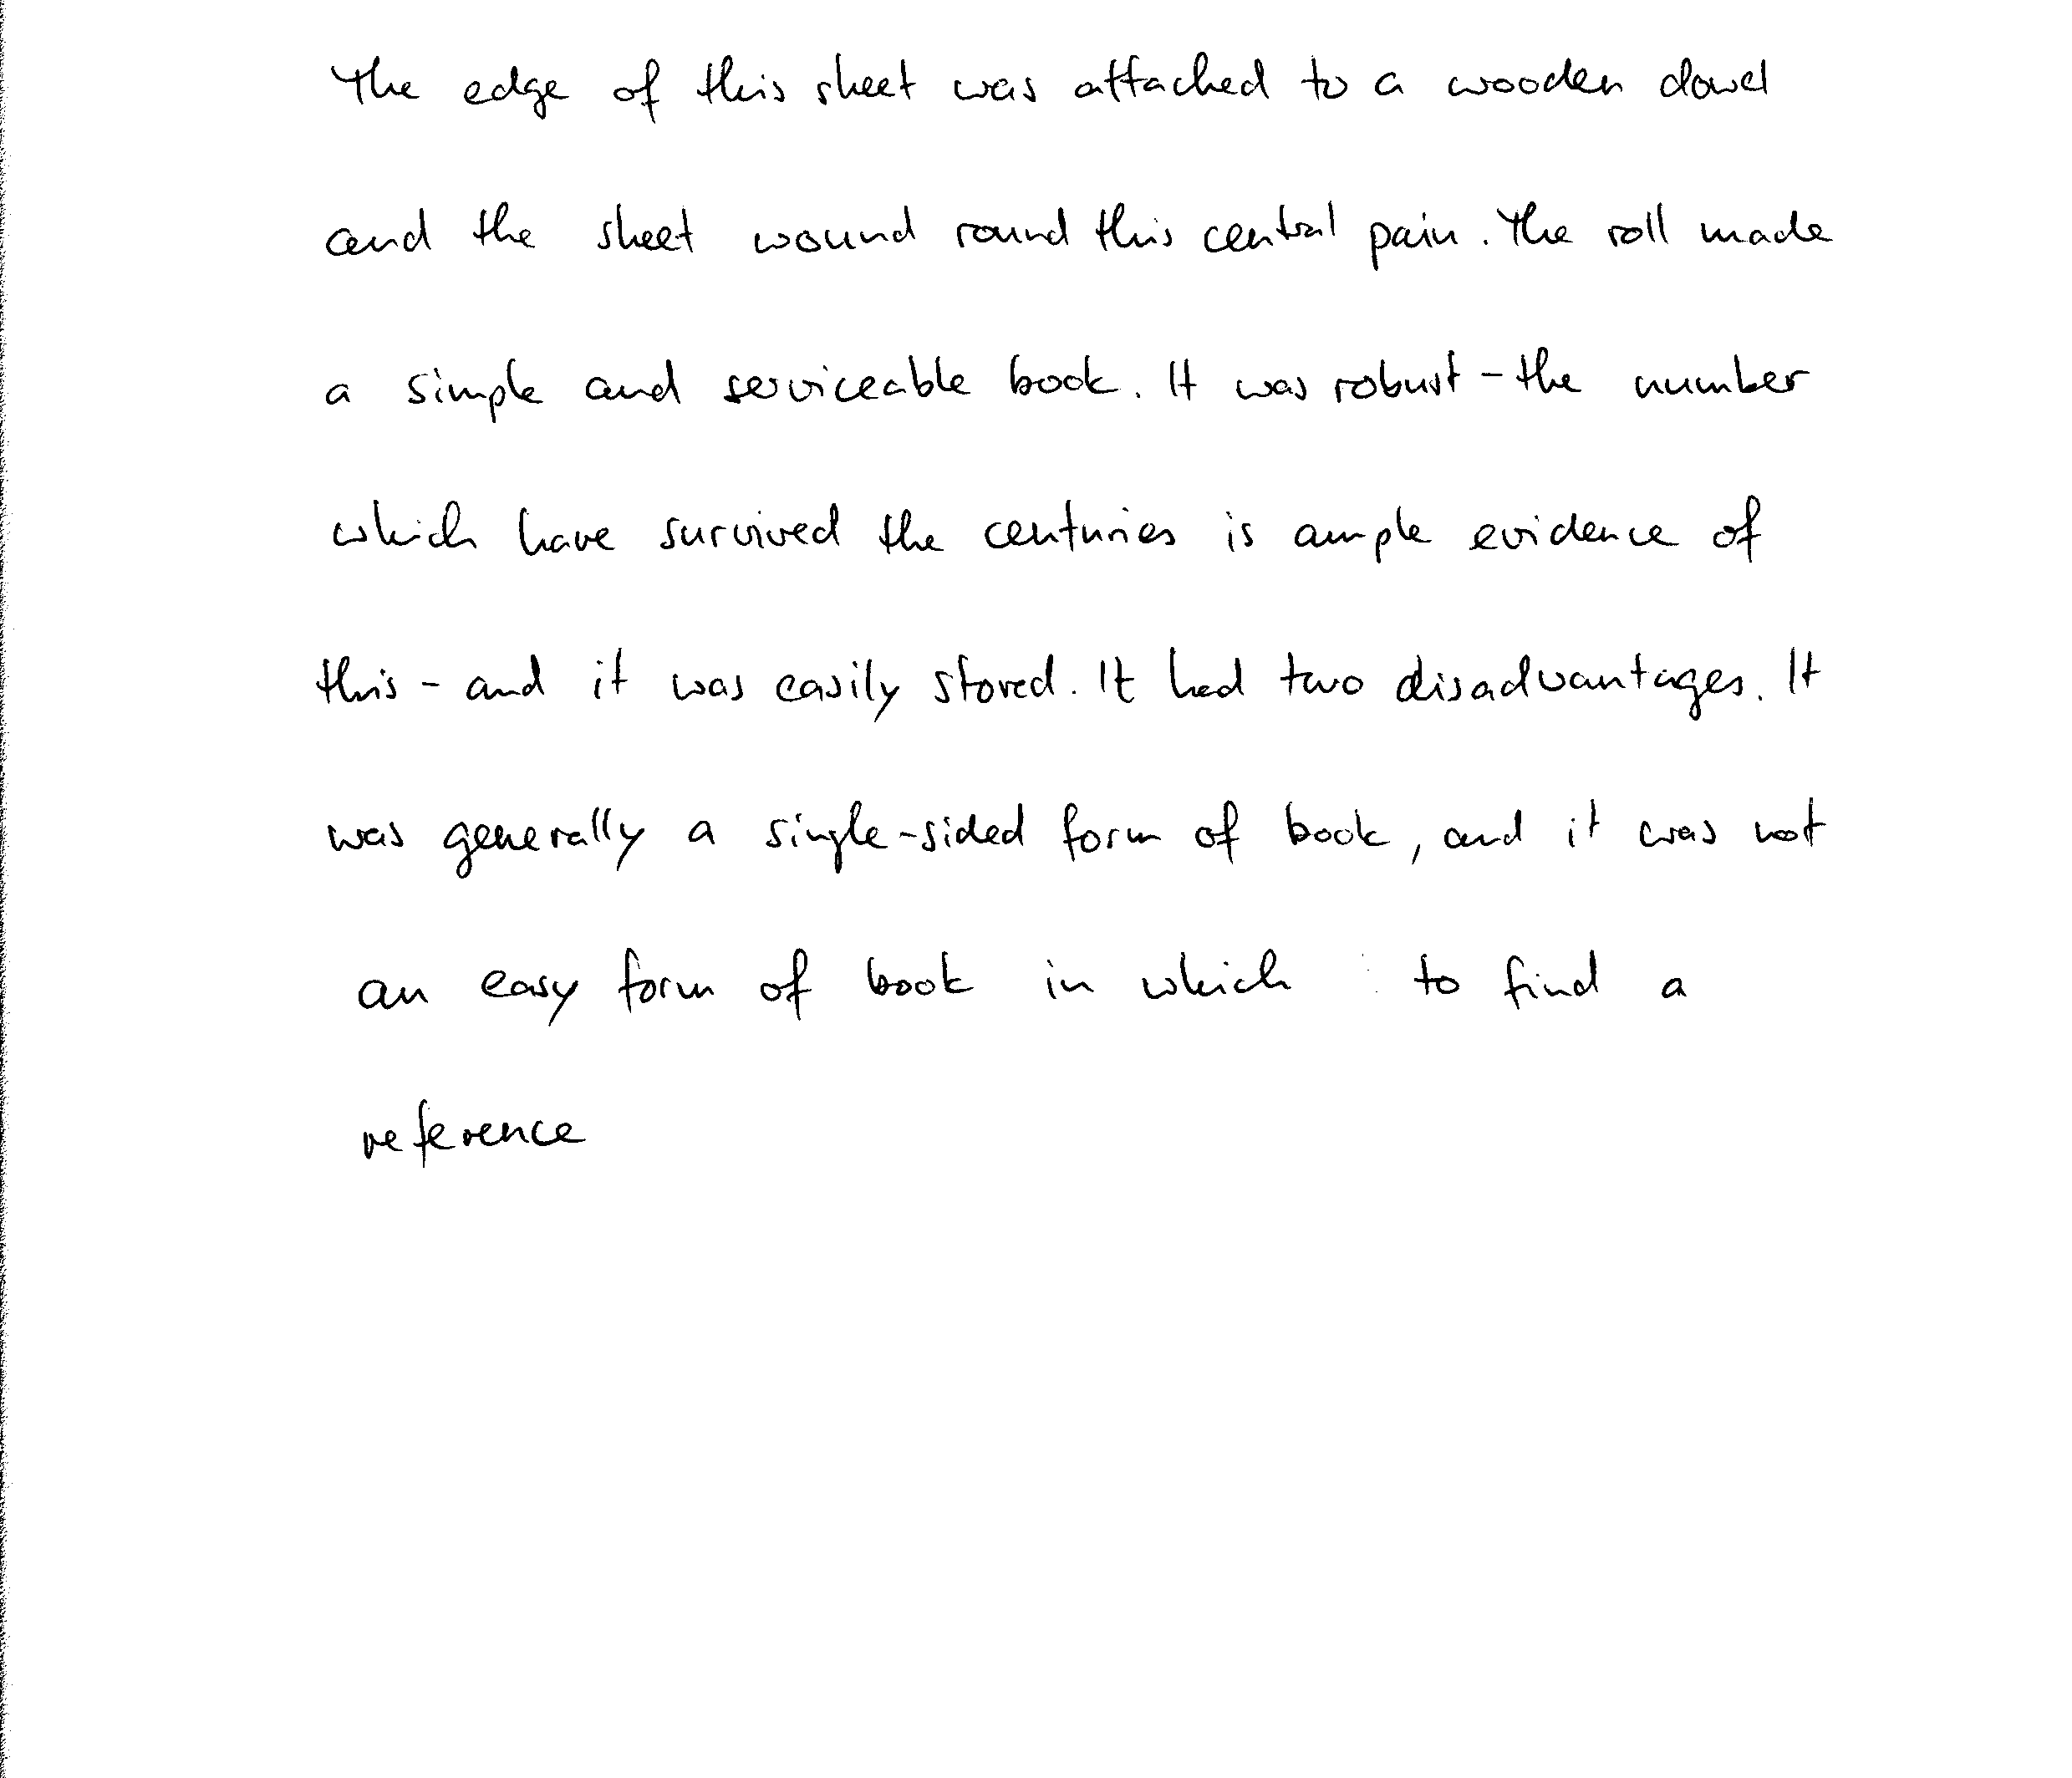 The edge of this sheet was attached to a wooden dowel
and the sheet wound round this central pain. The roll made
a simple and serviceable book. It was robust - the number
which have survived the centuries is ample evidence of
this - and it was easily stored. It had two disadvantages. It
was generally a single-sided form of book, and it was not
an easy form of book in which to find a
reference